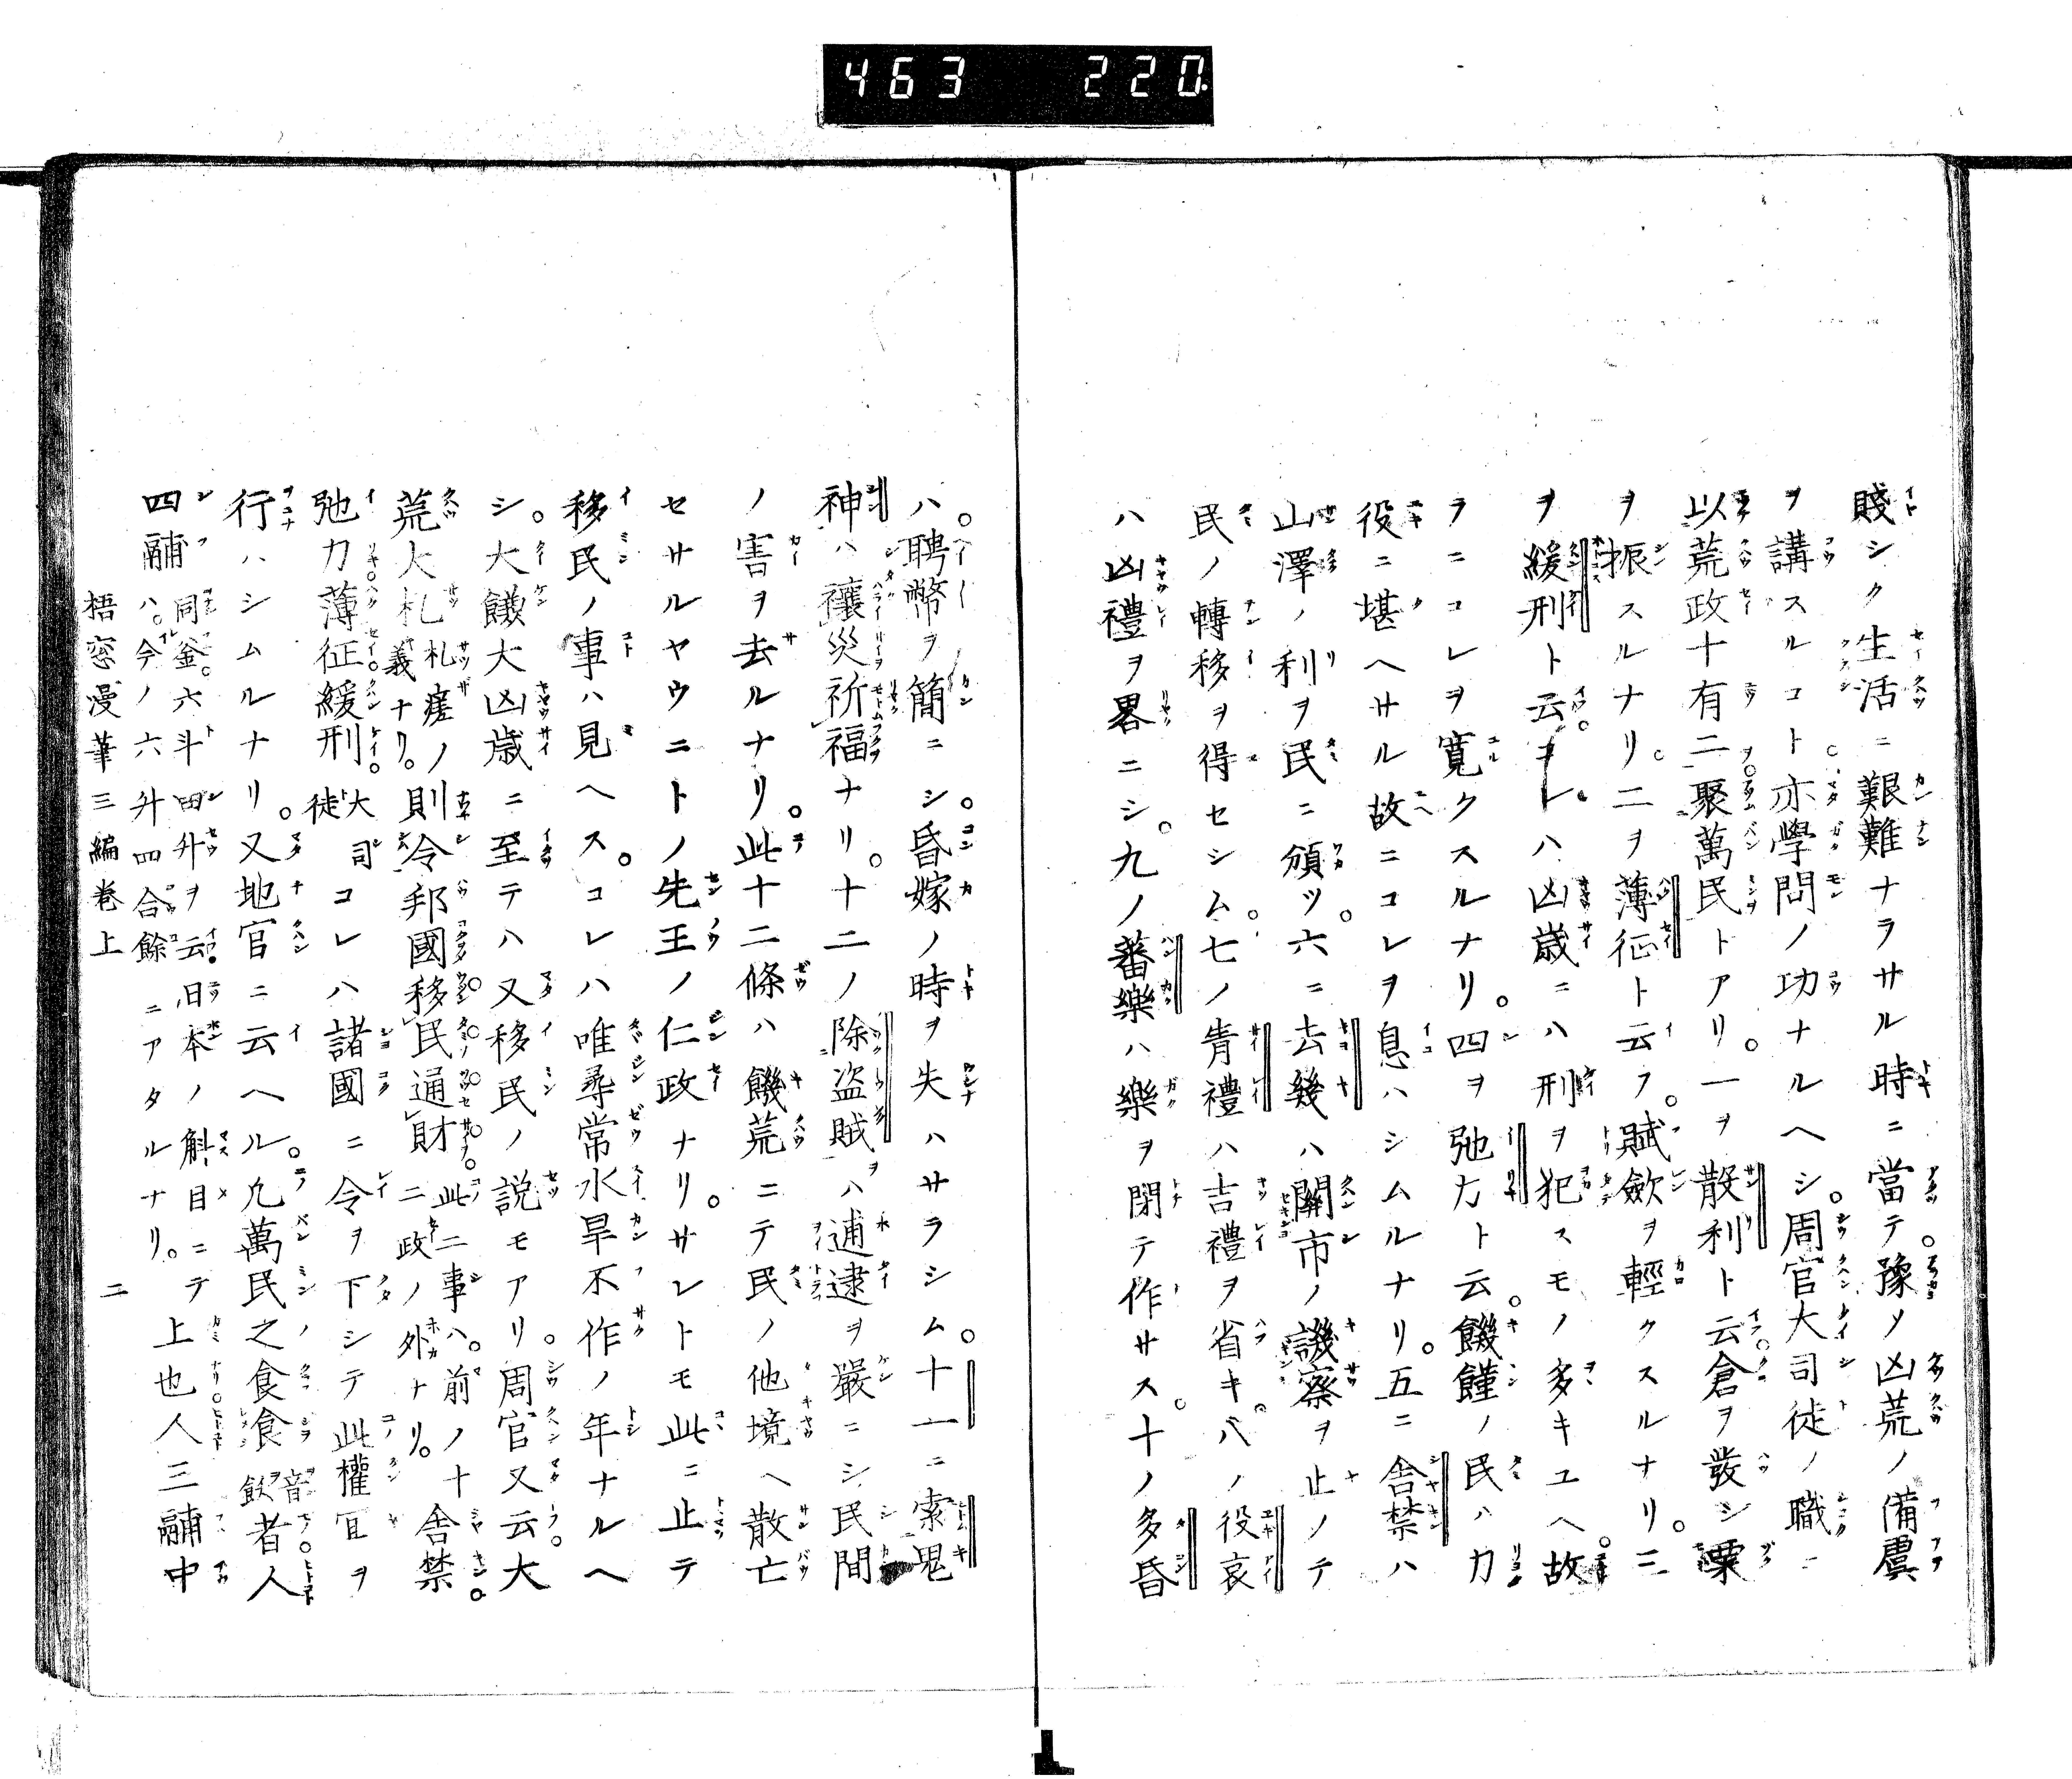 463 220
賤シク生活ニ艱難ナラサル時ニ當テ豫メ凶荒ノ備虞
ヲ講スルコト亦學問ノ功ナルヘシ。周官大司徒ノ職ニ
以荒政十有二聚萬民トアリ。一ヲ散利ト云倉ヲ發シ粟
ヲ振スルナリ。二ヲ薄征ト云フ。賦斂ヲ輕クスルナリ。三
ヲ緩刑ト云。コレハ凶歳ニハ刑ヲ犯スモノ多キユヘ故
ラニコレヲ寛クスルナリ。四ヲ弛力ト云。饑饉ノ民ハ力
役ニ堪ヘサル故ニコレヲ息ハシムルナリ。五ニ舎禁ハ
山澤ノ利ヲ民ニ頒ツ。六ニ去幾ハ關市ノ譏察ヲ止ノテ
民ノ轉移ヲ得セシム。七ノ眚禮ハ吉禮ヲ省キ。八ノ役哀
ハ凶禮ヲ畧ニシ。九ノ蕃樂ハ樂ヲ閉テ作サス。十ノ多昏
ハ聘幣ヲ簡ニシ。昏嫁ノ時ヲ失ハサラシム。十一ニ索鬼
神ハ禳災祈福ナリ。十二ノ除盗賊ヲハ逋逮ヲ嚴ニシ民間
ノ害ヲ去ルナリ。此十二條ハ饑荒ニテ民ノ他境ヘ散亡
セサルヤウニトノ先王ノ仁政ナリ。サレトモ此ニ止テ
移民ノ事ハ見ヘス。コレハ唯尋常水旱不作ノ年ナルヘ
シ。大饑大凶歳ニ至テハ又移民ノ説モアリ。周官又云。大
荒大札札瘥ノ義ナリ。則令邦國移民通財此二事ハ。前ノ十二政ノ外ナリ。舎禁
弛力薄征緩刑。大司徒コレハ諸國ニ令ヲ下シテ此權宜ヲ
行ハシムルナリ。又地官ニ云ヘル。凡萬民之食食音飲者人
四鬴同釜。六斗四升ヲ云。日本ノ斛目ニテハ。今ノ六升四合餘ニアタルナリ。上也人三鬴中
梧窓漫筆三編巻上 二